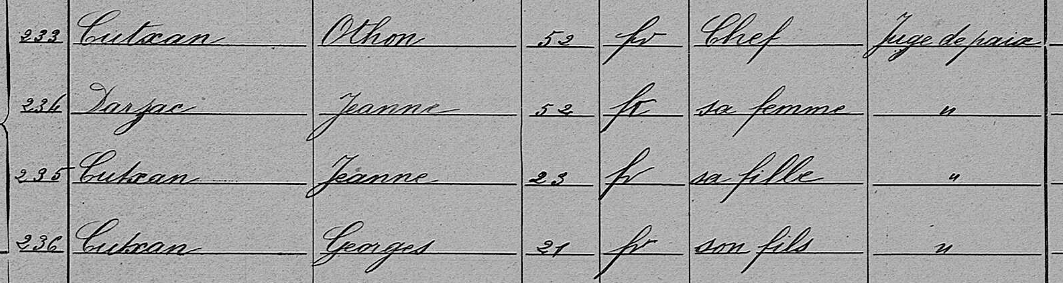 233 Cutxan Othon 52 fr Chef Juge de paix
234 Darzac Jeanne 52 fr sa femme "
235 Cutxan Jeanne 23 fr sa fille "
236 Cutxan Georges 21 fr son fils "